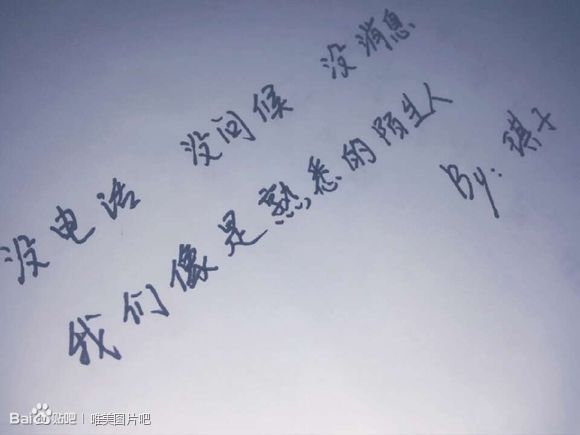 没电话 没问候 没消息
我们像是熟悉的陌生人
By:琪子
Bai du 贴吧 | 唯美图片吧